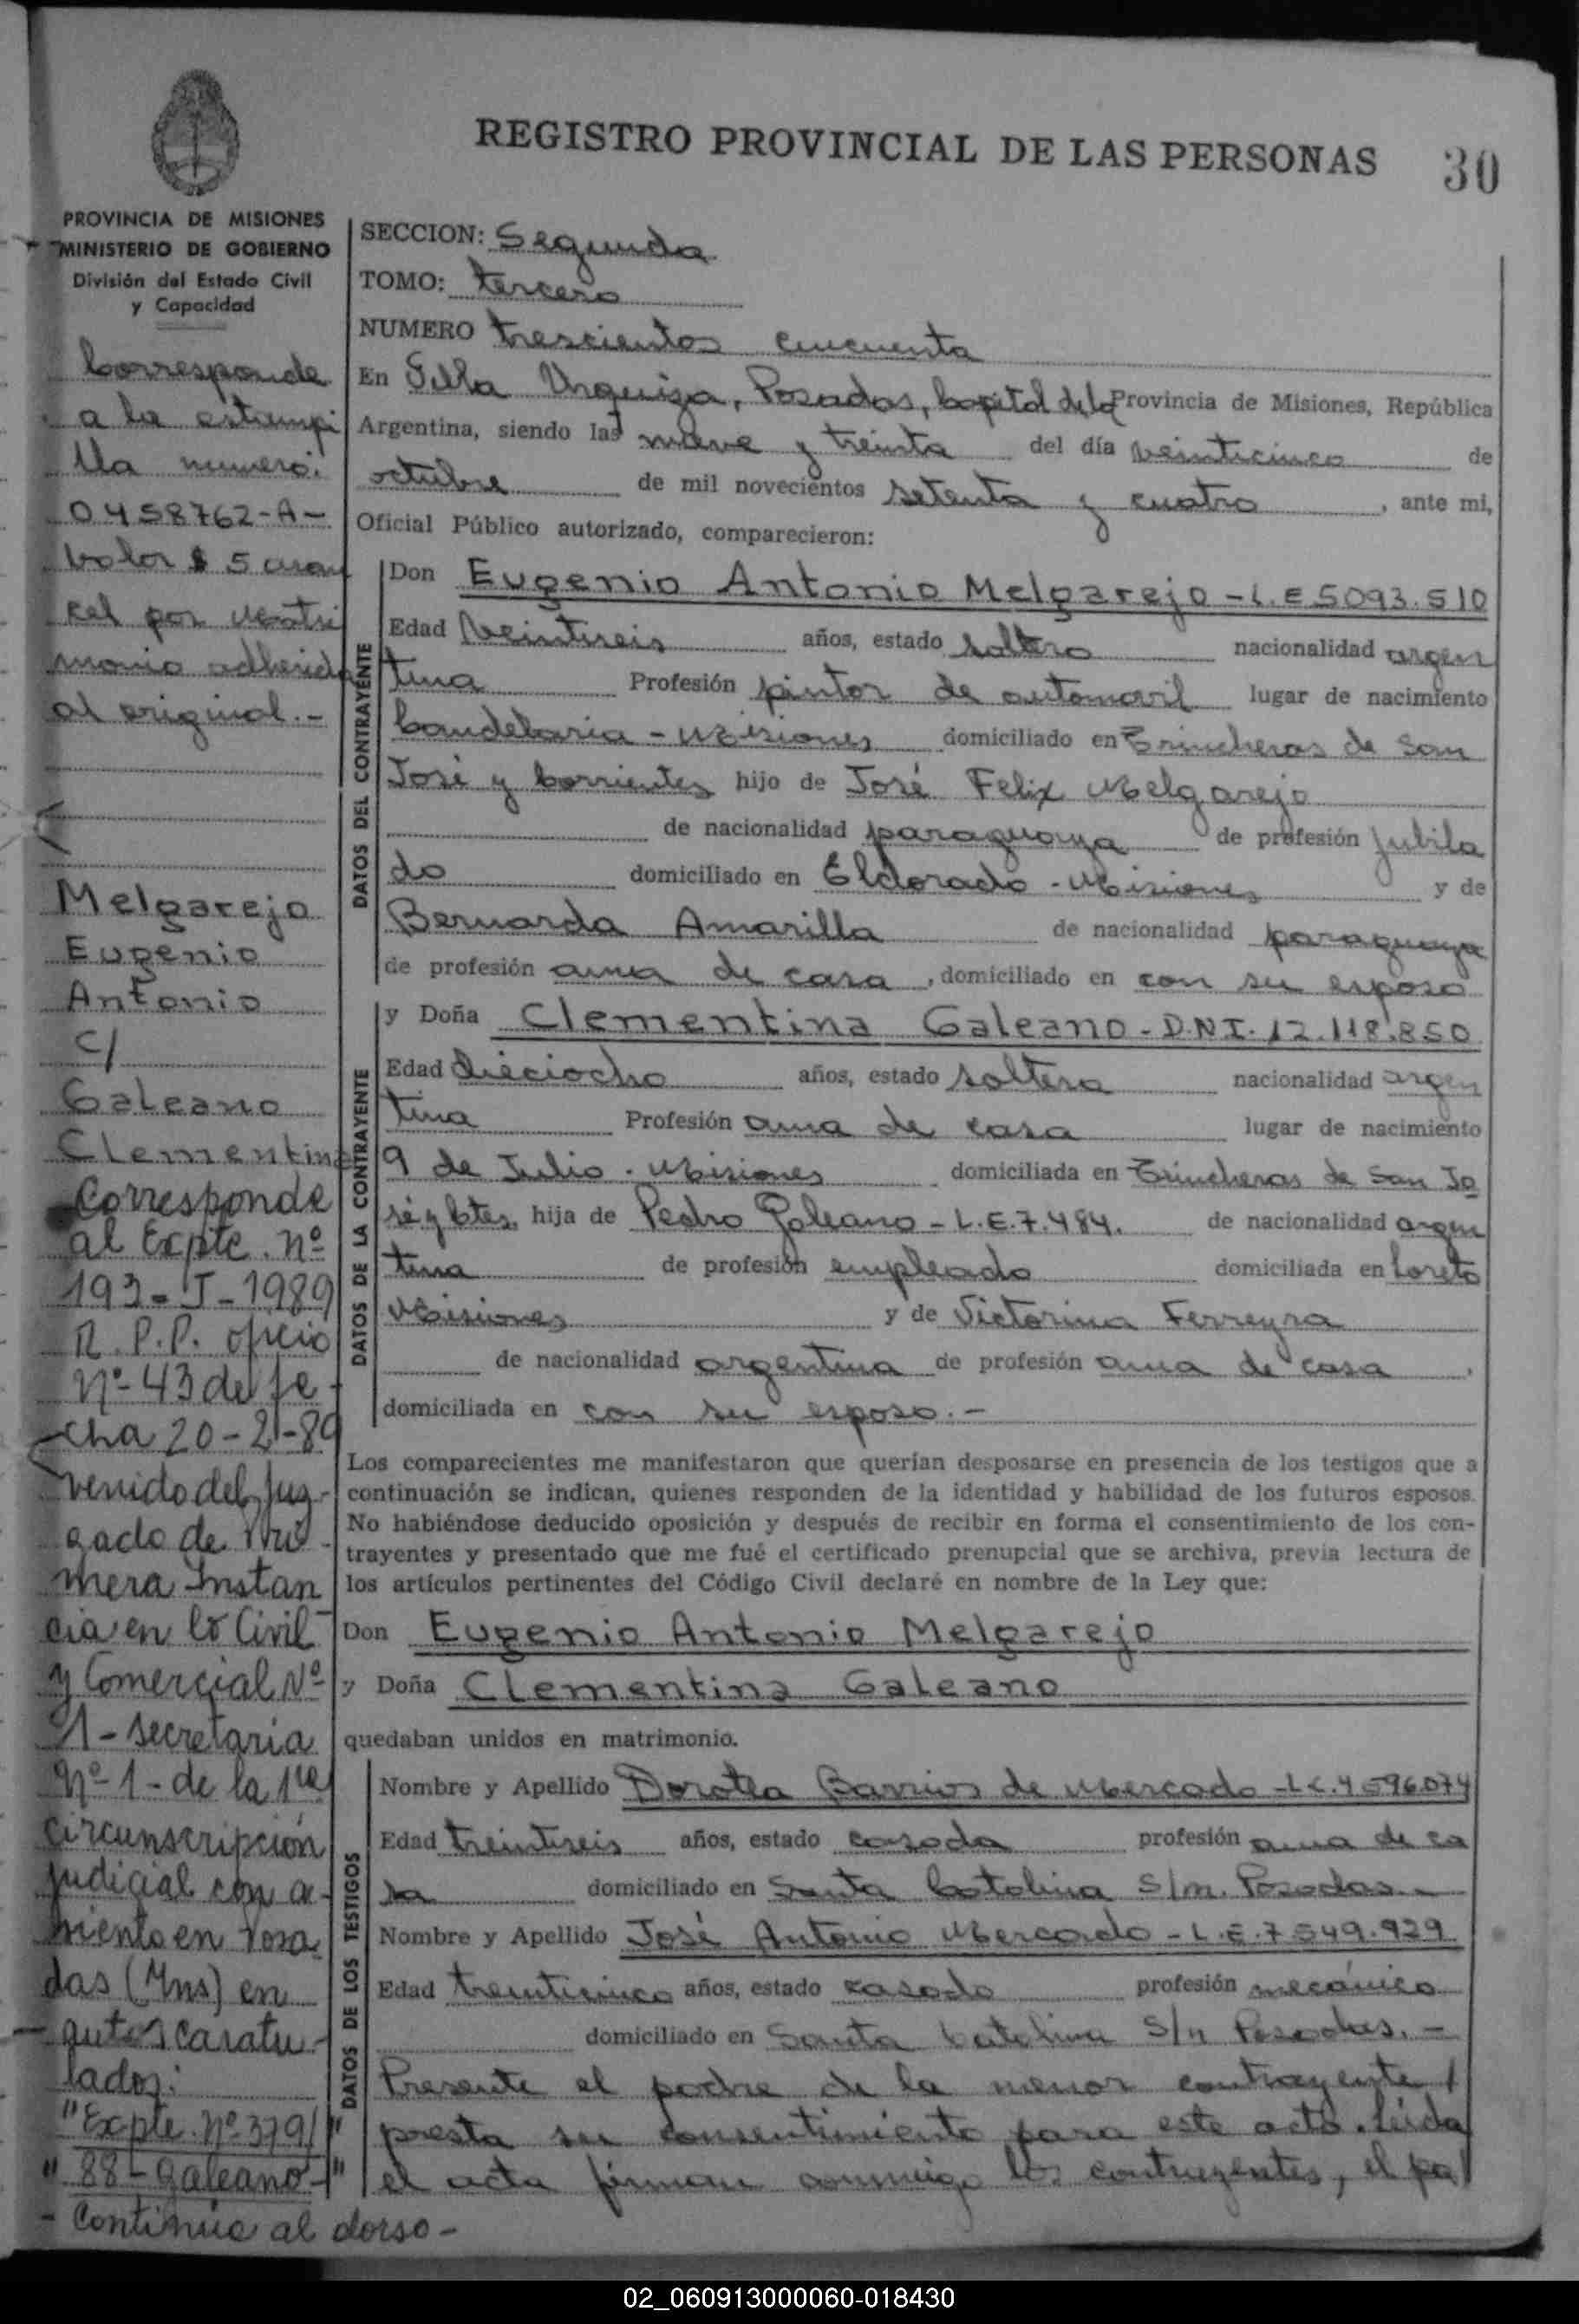 REGISTRO PROVINCIAL DE LAS PERSONAS 30
PROVINCIA DE MISIONES
MINISTERIO DE GOBIERNO
División del Estado Civil
y Capacidad
Corresponde
a la estampi
lla numero:
0458762-A-
Valor $ 5 aran
cel por Matri
monio adherida
al original.-
Melgarejo
Eugenio
Antonio
c/
Galeano
Clementina
Corresponde
al Expte. nº
193-J-1989
R.P.P. oficio
Nº-43 de fe-
cha 20-2-89
venido del Juz-
gado de Pri-
mera Instan
cia en lo Civil
y Comercial Nº
1-secretaria
Nº-1-de la 1ra
circunscripción
judicial con a-
siento en Posa
das (Mns) en
autos caratu-
lados:
"Expte. Nº 379/"
"88-Galeano-"
-Continúa al dorso-
SECCION: Segunda
TOMO: tercero
NUMERO trescientos cincuenta
En Villa Urquiza, Posadas, Capital de la Provincia de Misiones, República
Argentina, siendo las nueve y treinta del día veinticinco de
octubre de mil novecientos setenta y cuatro, ante mi,
Oficial Público autorizado, comparecieron:
DATOS DEL CONTRAYENTE
Don Eugenio Antonio Melgarejo - L.E 5093.510
Edad veintiseis años, estado soltero nacionalidad argen
tina Profesión pintor de automovil lugar de nacimiento
Candelaria - Misiones domiciliado en Trincheras de San
José y Corrientes hijo de José Felix Melgarejo
de nacionalidad paraguaya de profesión jubila
do domiciliado en Eldorado - Misiones y de
Bernarda Amarilla de nacionalidad paraguaya
de profesión ama de casa, domiciliado en con su esposo
DATOS DE LA CONTRAYENTE
y Doña Clementina Galeano - D.N.I. 12.118.850
Edad dieciocho años, estado soltera nacionalidad argen
tina Profesión ama de casa lugar de nacimiento
9 de Julio - Misiones domiciliada en Trincheras de San Jo
sé y Ctes, hija de Pedro Galeano - L.E.7.484. de nacionalidad argen
tina de profesión empleado domiciliada en Loreto
Misiones y de Victorina Ferreyra
de nacionalidad argentina de profesión ama de casa,
domiciliada en con su esposo.-
Los comparecientes me manifestaron que querían desposarse en presencia de los testigos que a
continuación se indican, quienes responden de la identidad y habilidad de los futuros esposos.
No habiéndose deducido oposición y después de recibir en forma el consentimiento de los con-
trayentes y presentado que me fué el certificado prenupcial que se archiva, previa lectura de
los artículos pertinentes del Código Civil declaré en nombre de la Ley que:
Don Eugenio Antonio Melgarejo
y Doña Clementina Galeano
quedaban unidos en matrimonio.
DATOS DE LOS TESTIGOS
Nombre y Apellido Dorotea Barrios de Mercado - L.C.4596074
Edad treintiseis años, estado casada profesión ama de ca
sa domiciliado en Santa Catalina S/n. Posadas.-
Nombre y Apellido José Antonio Mercado - L.E.7549.929
Edad treinticinco años, estado casado profesión mecánico
domiciliado en Santa Catalina S/n Posadas.-
Presente el padre de la menor contrayente /
presta su consentimiento para este acto. Leida
el acta firman conmigo los contrayentes, el pa
02_060913000060-018430